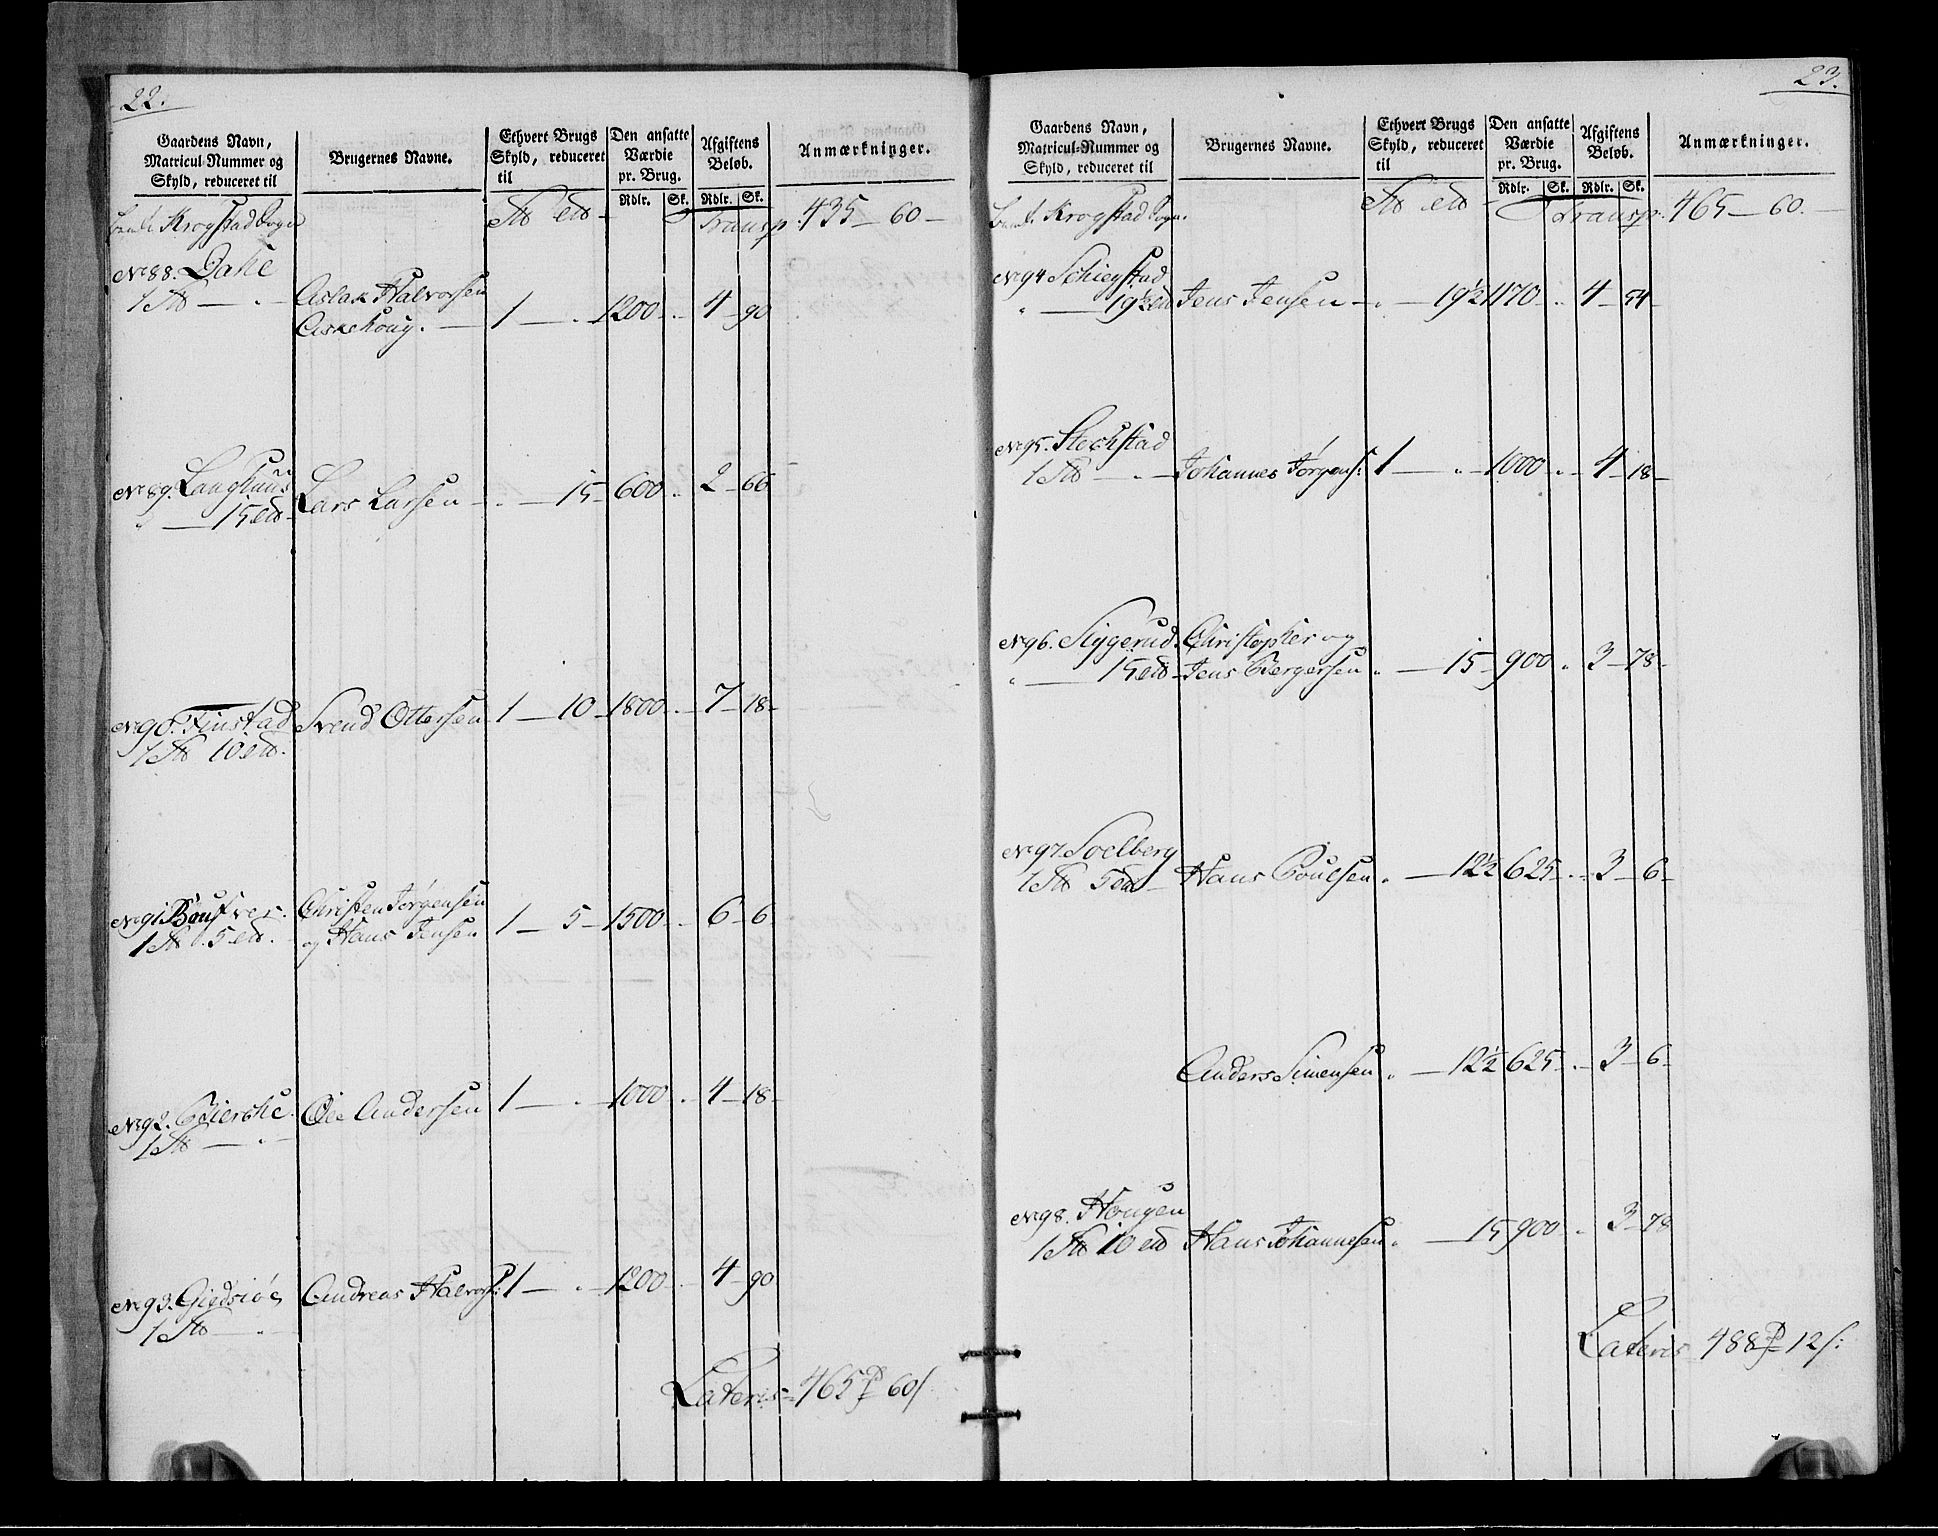 22.
Gaardens Navn, Matricul-Nummer og Skyld, reduceret til | Brugernes Navne. | Ethvert Brugs Skyld, reduceret til | Den ansatte Værdie pr. Brug. Rdlr. Sk. | Afgiftens Beløb. Rdlr. Sk. | Anmærkninger.
Krogstad Sogn Transp: 435 — 60 —
No 88. Dahl
1 — " — Aslak Halvorsen
Askehoug. — 1 — " 1200 " 4 — 90
No 89. Langhuus Lars Larsen — " — 15 — 600 " 2 — 66
" — 15
No 90. Finstad Svend Ottersen 1 — 10 — 1800 " 7 — 18 —
1 10
No 91. Christen Jørgensen
1 5 og Hans Jensen 1 — 5 — 1500 " 6 — 6
No 92. Bierche Ole Andersen 1 — " 1000 " 4 — 18 —
1 — " —
No 93. Giedsiøe Andreas Halvors: 1 — " 1200 " 4 — 90
1 — "
Lateris — 465 60
23.
Gaardens Navn, Matricul-Nummer og Skyld, reduceret til | Brugernes Navne. | Ethvert Brugs Skyld, reduceret til | Den ansatte Værdie pr. Brug. Rdlr. Sk. | Afgiftens Beløb. Rdlr. Sk. | Anmærkninger.
Krogstad Sogn Transp: 465 — 60 —
No 94 Schiegstad
" — 19½ Jens Jensen — " — 19½ 1170 " 4 — 54 —
No 95. Stechstad
1 — " — Johannes Jørgens: 1 — " 1000 " 4 — 18 —
No 96. Siggerud Christopher og
" — 15 Jens Bergersen " — 15 — 900 " 3 — 78 —
No 97. Soelberg
1 5 Hans Poulsen " — 12½ 625 " 3 — 6 —
Anders Simensen " — 12½ 625 " 3 — 6 —
No 98. Hougen
1 10 Hans Johannesen " — 15 900 " 3 — 78
Lateris 488 12